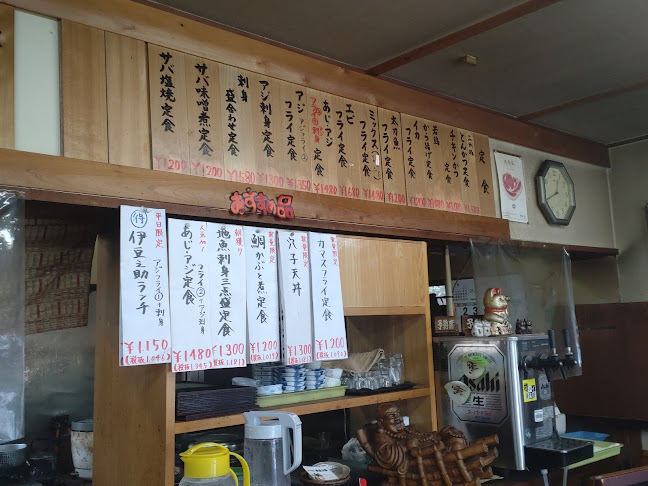 定食
とんかつ定食
チキンかつ
若鶏
から揚げ定食
イカ
フライ定食
太刀魚
フライ定食
ミックス
フライ定食
エビ
フライ定食
あじ・アジ
フライ 刺身 定食
アジ
フライ定食
アジ刺身定食
¥1300
刺身
盛合わせ定食
¥1580
サバ味噌煮定食
¥1200
サバ塩焼定食
¥1200
おすすめ品
数量限定
カマスフライ定食
¥1200
数量限定
穴子天丼
¥1300
数量限定
鯛かぶと煮定食
¥1200
朝獲り
地魚刺身三点盛定食
¥1300
人気No.1
あじ・アジ定食
フライ②+アジ刺身
¥1480
平日限定
得 伊豆之助ランチ
アジフライ①+刺身
¥1,150
Asahi
生